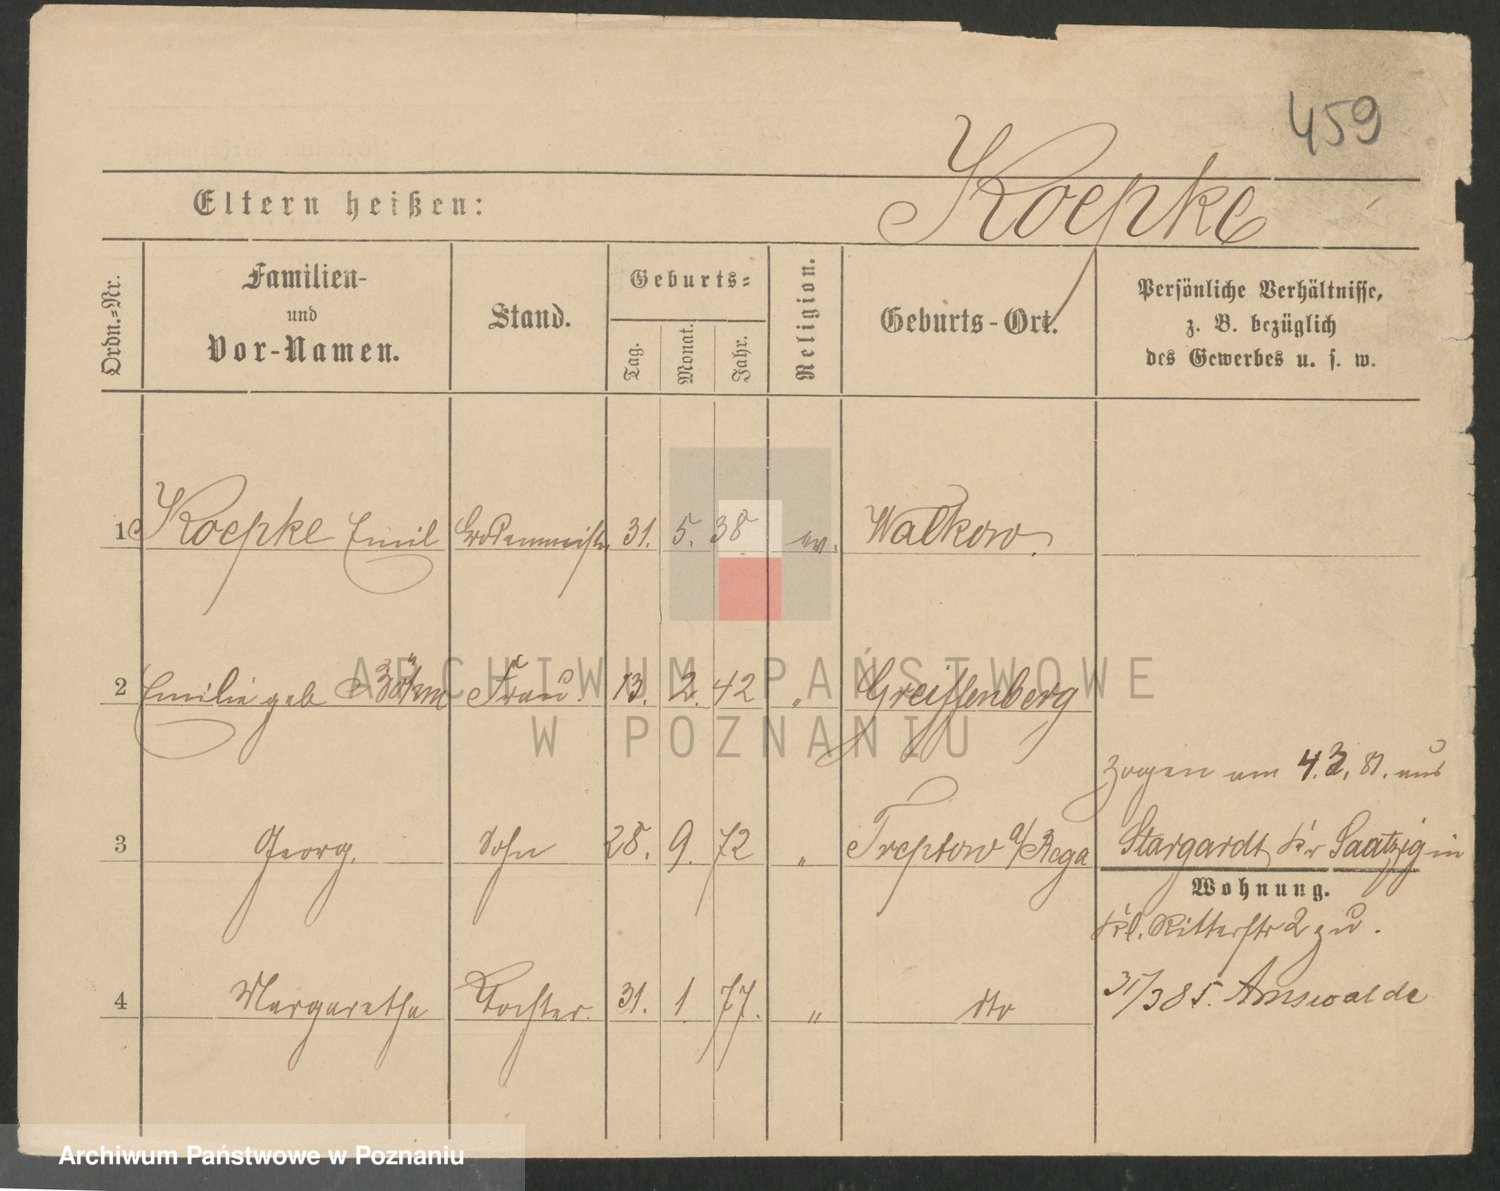 459
Koepke
Eltern heißen:
Ordn.-Nr.
Familien- und Vor-Namen.
Stand.
Geburts-
Tag.
Monat.
Jahr.
Religion.
Geburts-Ort.
Persönliche Verhältnisse,
z. B. bezüglich
des Gewerbes u. s. w.
1 Koepke Emil 31. 5. 38 ev. Walkow.
2 Emilie geb Böhm Frau. 13. 2. 42 " Greiffenberg
zogen am 4.3.81. aus
3 Georg. Sohn 28. 9. 72 " Treptow a/Rega Stargardt Kr Saatzig in
Wohnung.
Ritterstr 2 zu.
4 Margaretha Tochter. 31. 1 77. " dto 31/3 85. Arnswalde
ARCHIWUM PAŃSTWOWE
W POZNANIU
Archiwum Państwowe w Poznaniu